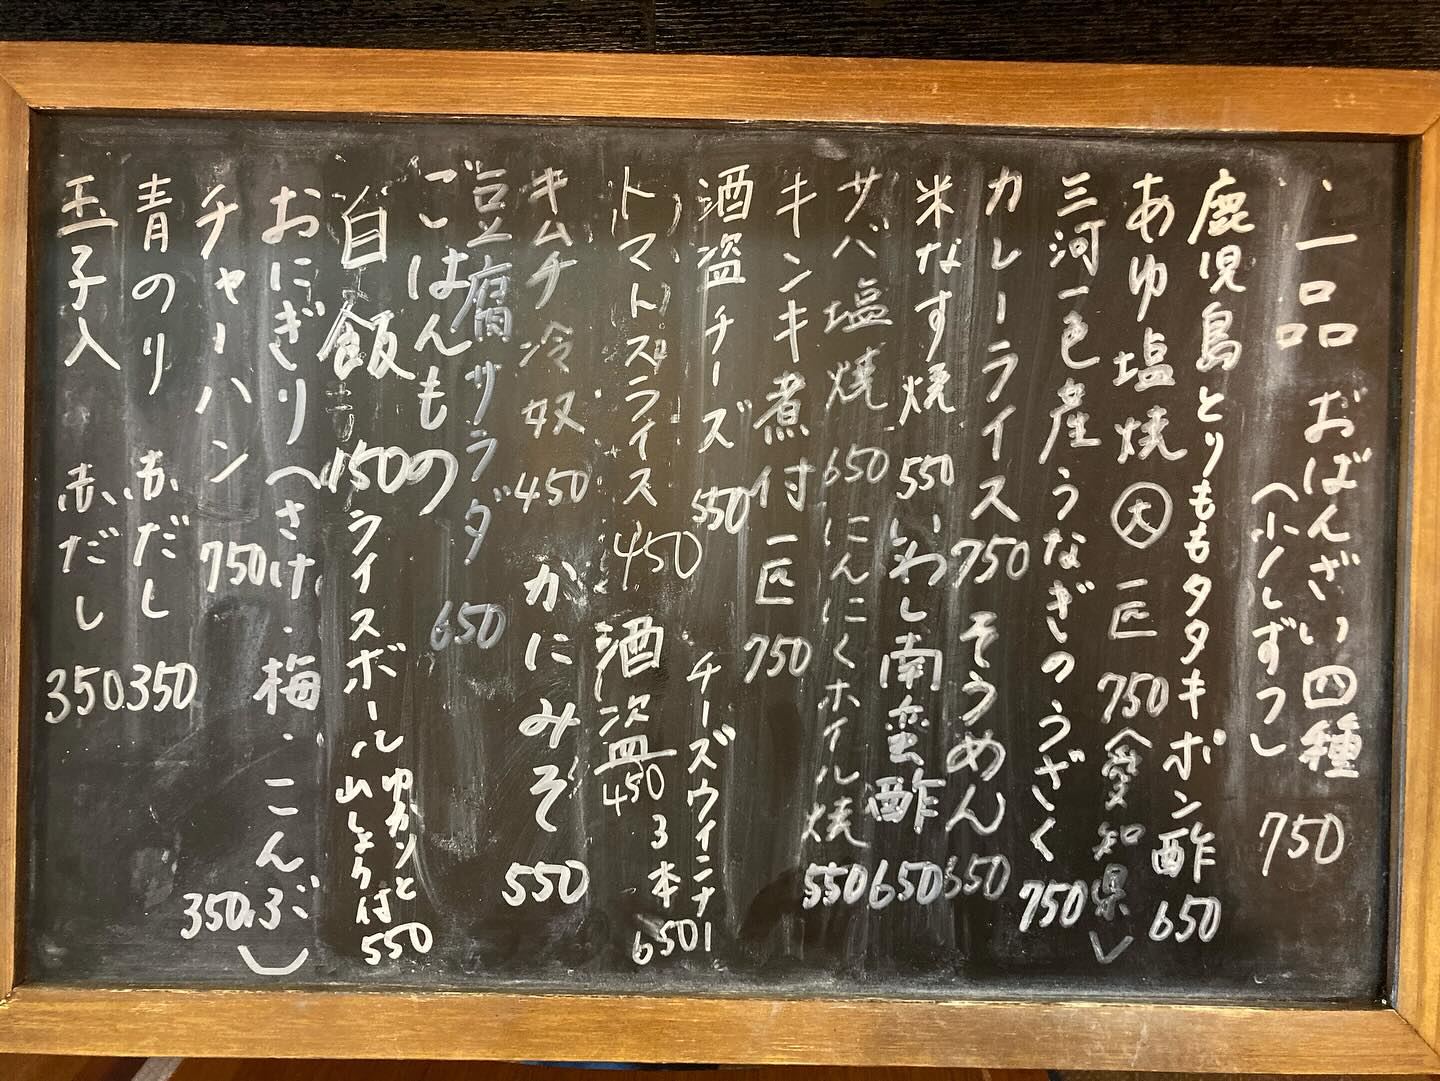 一品 おばんざい四種 750
(少しずつ)
鹿児島とりももタタキポン酢 650
あゆ塩焼 大 一匹 750(愛知県)
三河一色産うなぎのうざく 750
カレーライス 750 そうめん 650
米なす焼 550 いわし南蛮酢 650
サバ塩焼 650 にんにくホイル焼 550
キンキ煮付 一匹 750
酒盗チーズ 550 チーズウインナー
3本 650
トマトスライス 450 酒盗 450
キムチ冷奴 450 かにみそ 550
豆腐サラダ 650
ごはんもの
白飯 150 ライスボール ゆかりと
山しょう付 550
おにぎり(さけ・梅・こんぶ) 350
チャーハン 750
青のり 赤だし 350
玉子入 赤だし 350